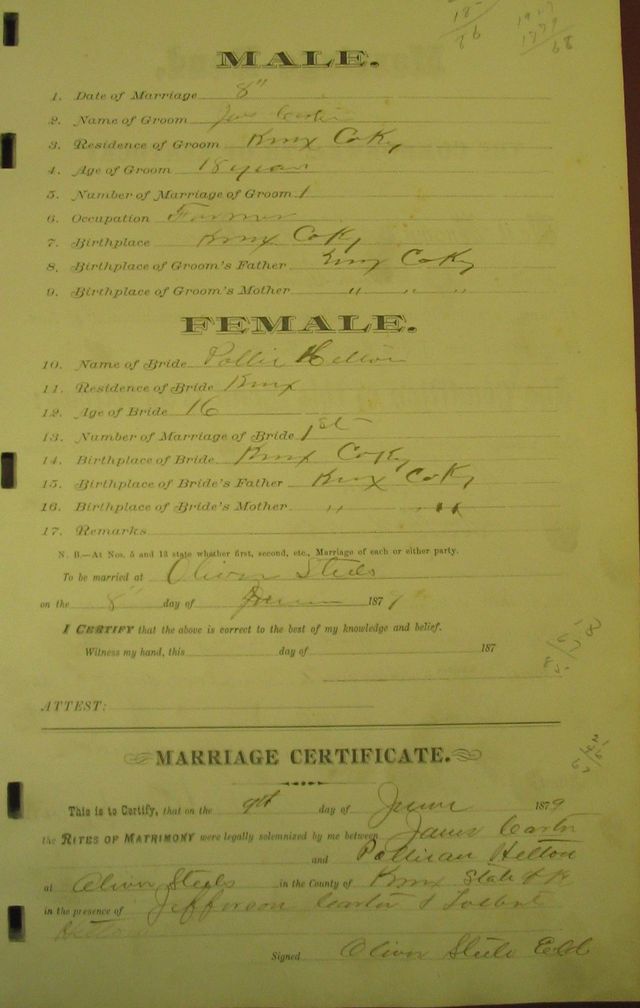 MALE.
1. Date of Marriage 8"
2. Name of Groom Jas Carter
3. Residence of Groom Knox Co Ky
4. Age of Groom 18 years
5. Number of Marriage of Groom 1
6. Occupation Farmer
7. Birthplace Knox Co Ky
8. Birthplace of Groom's Father Knox Co Ky
9. Birthplace of Groom's Mother " " "
FEMALE.
10. Name of Bride Pollie Helton
11. Residence of Bride Knox
12. Age of Bride 16
13. Number of Marriage of Bride 1st
14. Birthplace of Bride Knox Co Ky
15. Birthplace of Bride's Father Knox Co Ky
16. Birthplace of Bride's Mother " "
17. Remarks
N. B.—At Nos. 5 and 13 state whether first, second, etc., Marriage of each or either party.
To be married at Oliver Steels
on the 8" day of 1879
I CERTIFY that the above is correct to the best of my knowledge and belief.
Witness my hand, this day of 187
ATTEST:
MARRIAGE CERTIFICATE.
This is to Certify, that on the 9th day of June 1879
the RITES OF MATRIMONY were legally solemnized by me between James Carter
and Pollian Helton
at Oliver Steels in the County of Knox State of Ky
in the presence of Jefferson Carter & Tolbert
Helton
Signed Oliver Steele Eld